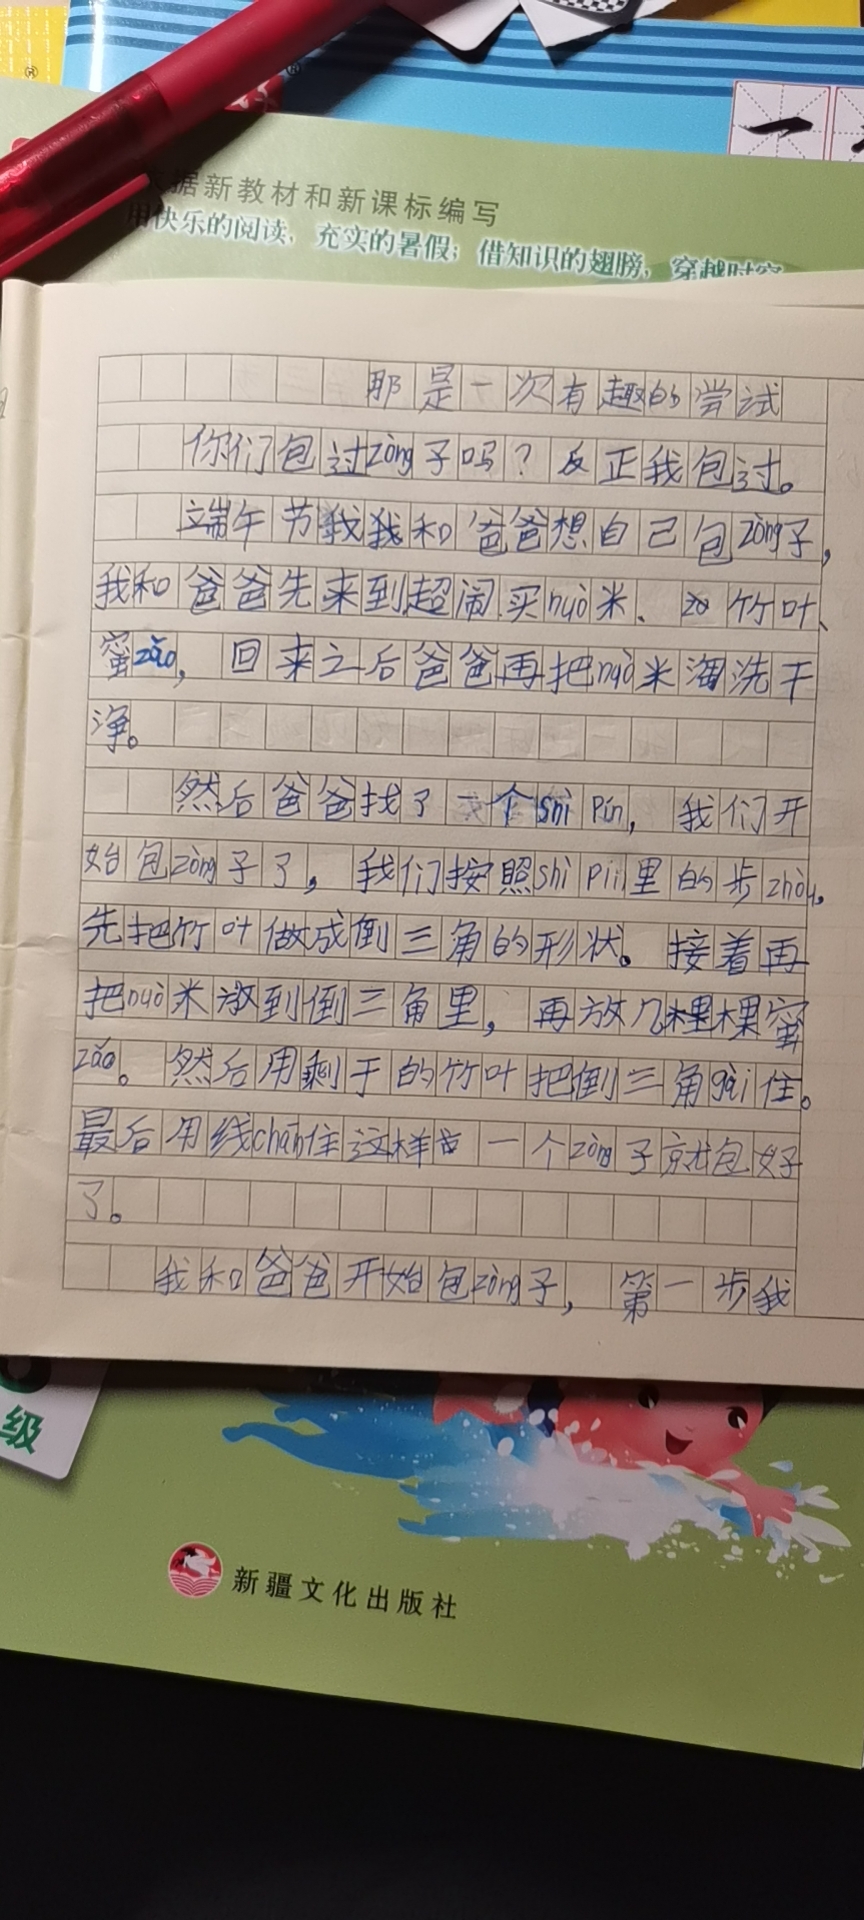 依据新教材和新课标编写
用快乐的阅读，充实的暑假；借知识的翅膀，穿越时空
那是一次有趣的尝试
你们包过zòng子吗？反正我包过。
端午节我我和爸爸想自己包zòng子，
我和爸爸先来到超闹买nuò米、竹叶、
蜜zǎo，回来之后爸爸再把nuò米淘洗干
净。
然后爸爸找了一个shì pín，我们开
始包zòng子了，我们按照shì pín里的步zhòu，
先把竹叶做成倒三角的形状。接着再
把nuò米放到倒三角里，再放几棵棵蜜
zǎo。然后用剩于的竹叶把倒三角gài住。
最后用线chán住这样 一个zòng子就包好
了。
我和爸爸开始包zòng子，第一步我
级
新疆文化出版社